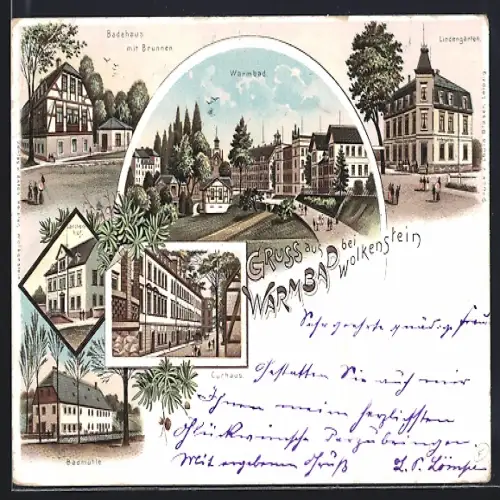 Badehaus
mit Brunnen.
Warmbad.
Lindengarten.
GRUSS aus
WARMBAD
bei
Wolkenstein
Curhaus.
Badmühle
Sehr geehrte gnädige Frau
Gestatten Sie auch mir
Ihnen meine herzlichsten
Glückwünsche
Mit ergebenem Gruß